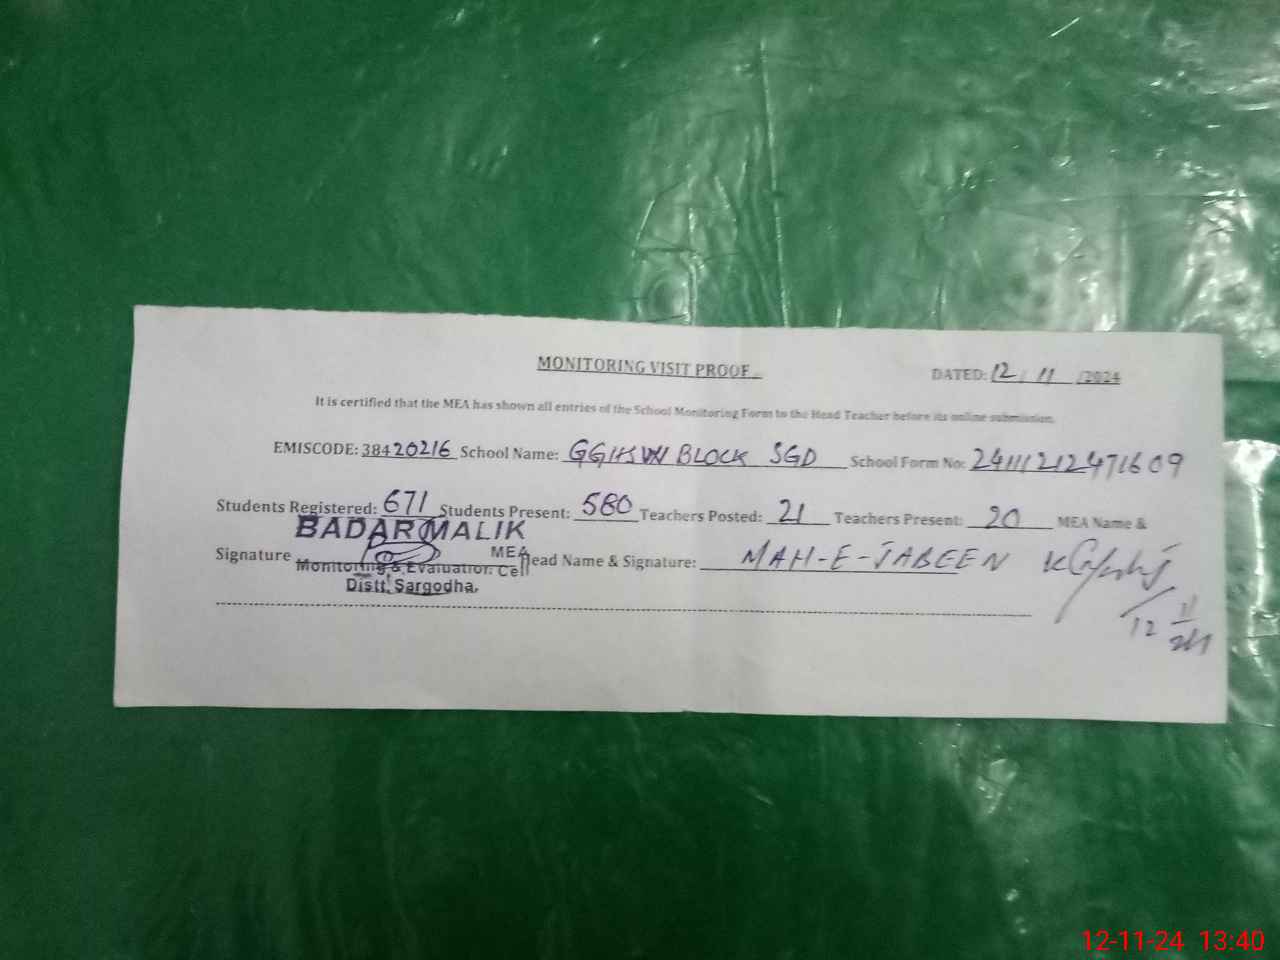 MONITORING VISIT PROOF
DATED: 12/11/2024
It is certified that the MEA has shown all entries of the School Monitoring Form to the Head Teacher before its online submission.
EMISCODE: 38420216 School Name: GGHS W BLOCK SGD School Form No: 24111212471609
Students Registered: 671 Students Present: 580 Teachers Posted: 21 Teachers Present: 20 MEA Name &
BADAR MALIK
Signature MEA Head Name & Signature: MAH-E-JABEEN
Monitoring & Evaluation Cell
Distt. Sargodha.
12 11 24
12-11-24 13:40